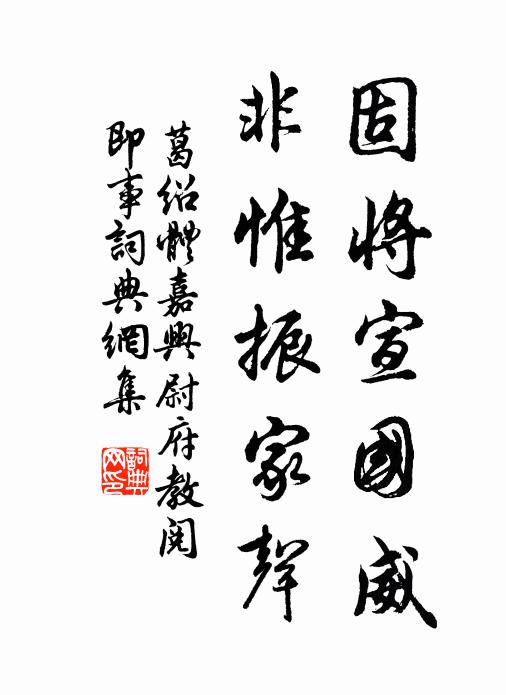 固將宣國威
非惟振家聲
葛紹體嘉興尉府教閱
即事詞典網集
詞典网印